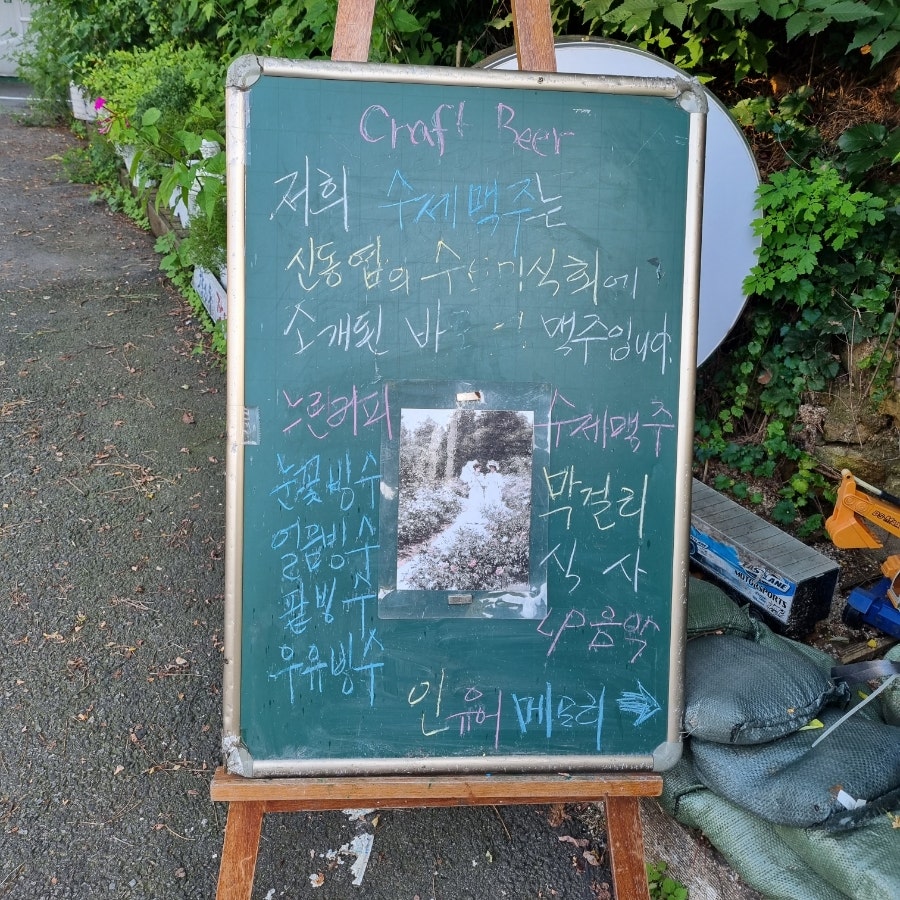 Craft Beer
저희 수제맥주는
신동엽의 수 미식회에
소개된 맥주입니다.
느린커피
눈꽃빙수
얼음빙수
팥빙수
우유빙수
수제맥주
막걸리
식사
LP음악
인유어메모리
MOTORSPORTS